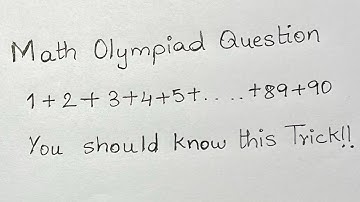 Math Olympiad Question
1+2+3+4+5+.....+89+90
You should know this Trick!!